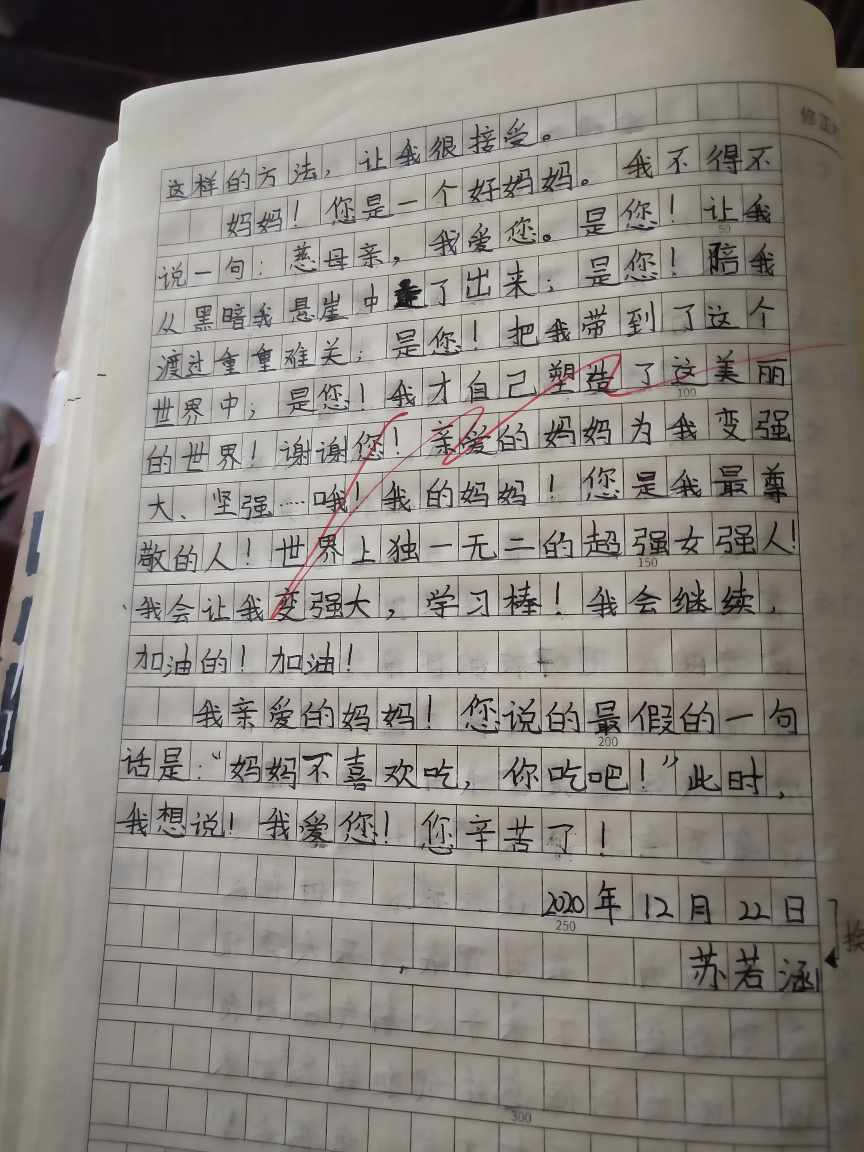 修正
这样的方法，让我很接受。
妈妈！您是一个好妈妈。我不得不
说一句：慈母亲，我爱您。是您！让我
50
从黑暗我悬崖中走了出来；是您！陪我
渡过重重难关；是您！把我带到了这个
世界中；是您！我才自己塑造了这美丽
100
的世界！谢谢您！亲爱的妈妈为我变强
大、坚强……哦！我的妈妈！您是我最尊
敬的人！世界上独一无二的超强女强人！
150
我会让我变强大，学习棒！我会继续，
加油的！加油！
我亲爱的妈妈！您说的最假的一句
200
话是：“妈妈不喜欢吃，你吃吧！”此时，
我想说！我爱您！您辛苦了！
2020年12月22日
250
苏若涵
300